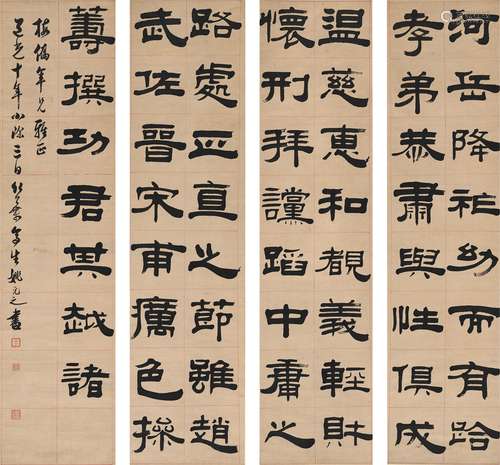 河岳降祉幼而有
孝弟恭肅與性俱成
温慈惠和覩義輕財
懷刑拜讜蹈中庸之
路處正直之節雖趙
武佐晉宋甫厲色操
薵撰功君其越諸
年兄雅正
道光十年小除三日竹葉亭生姚元之書